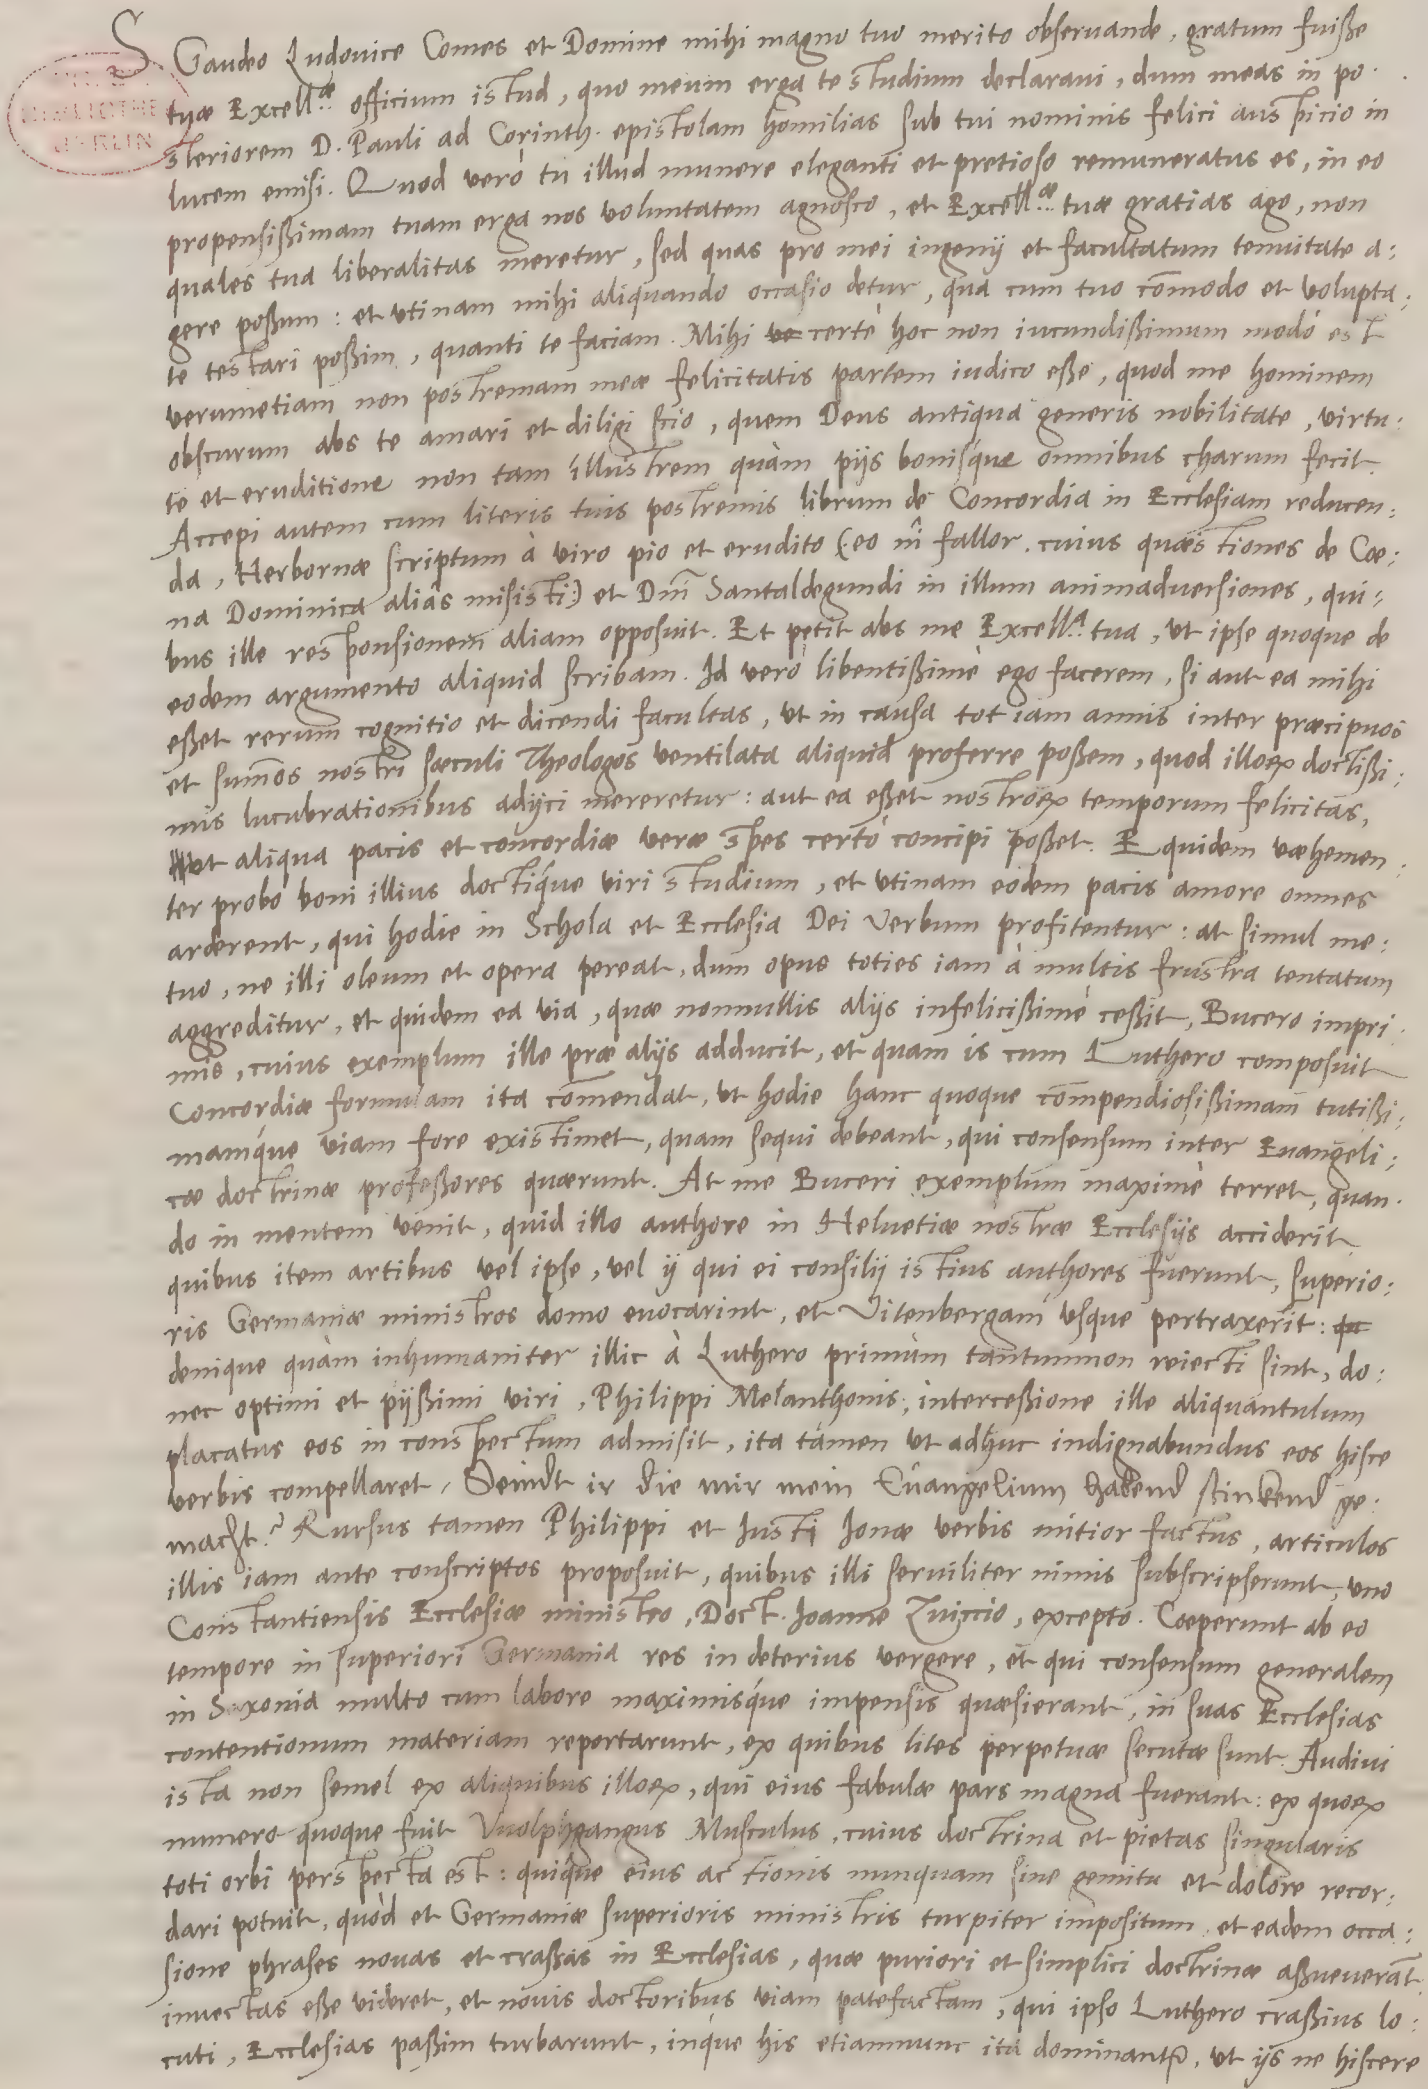 S Gaudeo Ludovice Comes et Domine mihi magno tuo merito observande, gratum fuiße
tuæ Excell.æ officium istud, quo meum erga te studium declaravi, dum meas in po-
steriorem D. Pauli ad Corinth. epistolam homilias sub tui nominis felici auspicio in
lucem emisi. Quod verò tu illud munere eleganti et pretioso remuneratus es, in eo
propensißimam tuam erga nos voluntatem agnosco, et Excell.æ tuæ gratias ago, non
quales tua liberalitas meretur, sed quas pro mei ingenij et facultatum tenuitate a:
gere poßum: et utinam mihi aliquando occasio detur, qua cum tuo cōmodo et volupta:
te testari poßim, quanti te faciam. Mihi certè hoc non iucundißimum modò est
verumetiam non postremam meæ felicitatis partem iudico eße, quod me hominem
obscurum abs te amari et diligi scio, quem Deus antiqua generis nobilitate, virtu:
te et eruditione non tam illustrem quàm pijs bonisque omnibus charum fecit.
Accepi autem cum literis tuis postremis librum de Concordia in Ecclesiam reducen:
da, Herbornæ scriptum à viro pio et erudito (:eo nî fallor, cuius quæstiones de Cœ:
na Dominica aliàs misisti:) et Dnī Santaldegundi in illum animadversiones, qui:
bus ille responsionem aliam opposuit. Et petit abs me Excell.a tua, ut ipse quoque de
eodem argumento aliquid scribam. Id verò libentißimè ego facerem, si aut ea mihi
eßet rerum cognitio et dicendi facultas, ut in causa tot iam annis inter præcipuos
et sum̄os nostri sæculi Theologos ventilata aliquid proferre poßem, quod illorꝝ doctißi:
mis lucubrationibus adijci mereretur: aut ea eßet nostrorꝝ temporum felicitas,
ut aliqua pacis et concordiæ veræ spes certò concipi poßet. Equidem væhemen:
ter probo boni illius doctique viri studium, et utinam eodem pacis amore omnes
arderent, qui hodie in Schola et Ecclesia Dei Verbum profitentur: at simul me:
tuo, ne illi oleum et opera pereat, dum opus toties iam à multis frustra tentatum
aggreditur, et quidem ea via, quæ nonnullis alijs infelicißimè ceßit, Bucero impri:
mis, cuius exemplum ille præ alijs adducit, et quam is cum Luthero composuit
Concordiæ formulam ita cōmendat, ut hodie hanc quoque compendiosißimam tutißi:
mamque viam fore existimet, quam sequi debeant, qui consensum inter Evangeli:
cæ doctrinæ profeßores quærunt. At me Buceri exemplum maximè terret, quan-
do in mentem venit, quid illo authore in Helvetiæ nostræ Ecclesijs acciderit,
quibus item artibus vel ipse, vel ij qui ei consilij istius authores fuerunt, superio:
ris Germaniæ ministros domo evocarint, et Vitenbergam usque pertraxerit:
denique quàm inhumaniter illic à Luthero primùm tantumnon reiecti sint, do:
nec optimi et pijßimi viri, Philippi Melanthonis, interceßione ille aliquantulum
placatus eos in conspectum admisit, ita tamen ut adhuc indignabundus eos hisce
verbis compellaret, Seindt ir die mir mein Euangelium habend stinkend ge:
macht? Rursus tamen Philippi et Iusti Ionæ verbis mitior factus, articulos
illis iam ante conscriptos proposuit, quibus illi serviliter nimis subscripserunt, uno
Constantiensis Ecclesiæ ministro, Doct. Ioanne Zviccio, excepto. Cœperunt ab eo
tempore in superiori Germania res in deterius vergere, et qui consensum generalem
in Saxonia multo cum labore maximisque impensis quæsierant, in suas Ecclesias
contentionum materiam reportarunt, ex quibus lites perpetuæ secutæ sunt. Audivi
ista non semel ex aliquibus illorꝝ, qui eius fabulæ pars magna fuerant: ex quorꝝ
numero quoque fuit Vuolphgangus Musculus, cuius doctrina et pietas singularis
toti orbi perspecta est: quique eius actionis nunquam sine gemitu et dolore recor:
dari potuit, quòd et Germaniæ superioris ministris turpiter impositum, et eadem occa:
sione phrases novas et craßas in Ecclesias, quæ puriori et simplici doctrinæ aßueverant
invectas eße videret, et novis doctoribus viam patefactam, qui ipso Luthero craßius lo:
cuti, Ecclesias paßim turbarunt, inque his etiamnunc ita dominantur, ut ijs ne hiscere